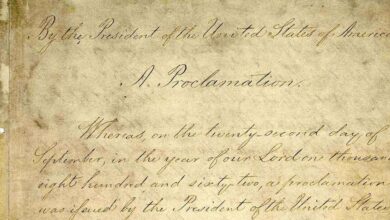 By the President of the United States of America
A Proclamation.
Whereas, on the twenty-second day of
September, in the year of our Lord one thousand
eight hundred and sixty-two, a proclamation
was issued by the President of the United States